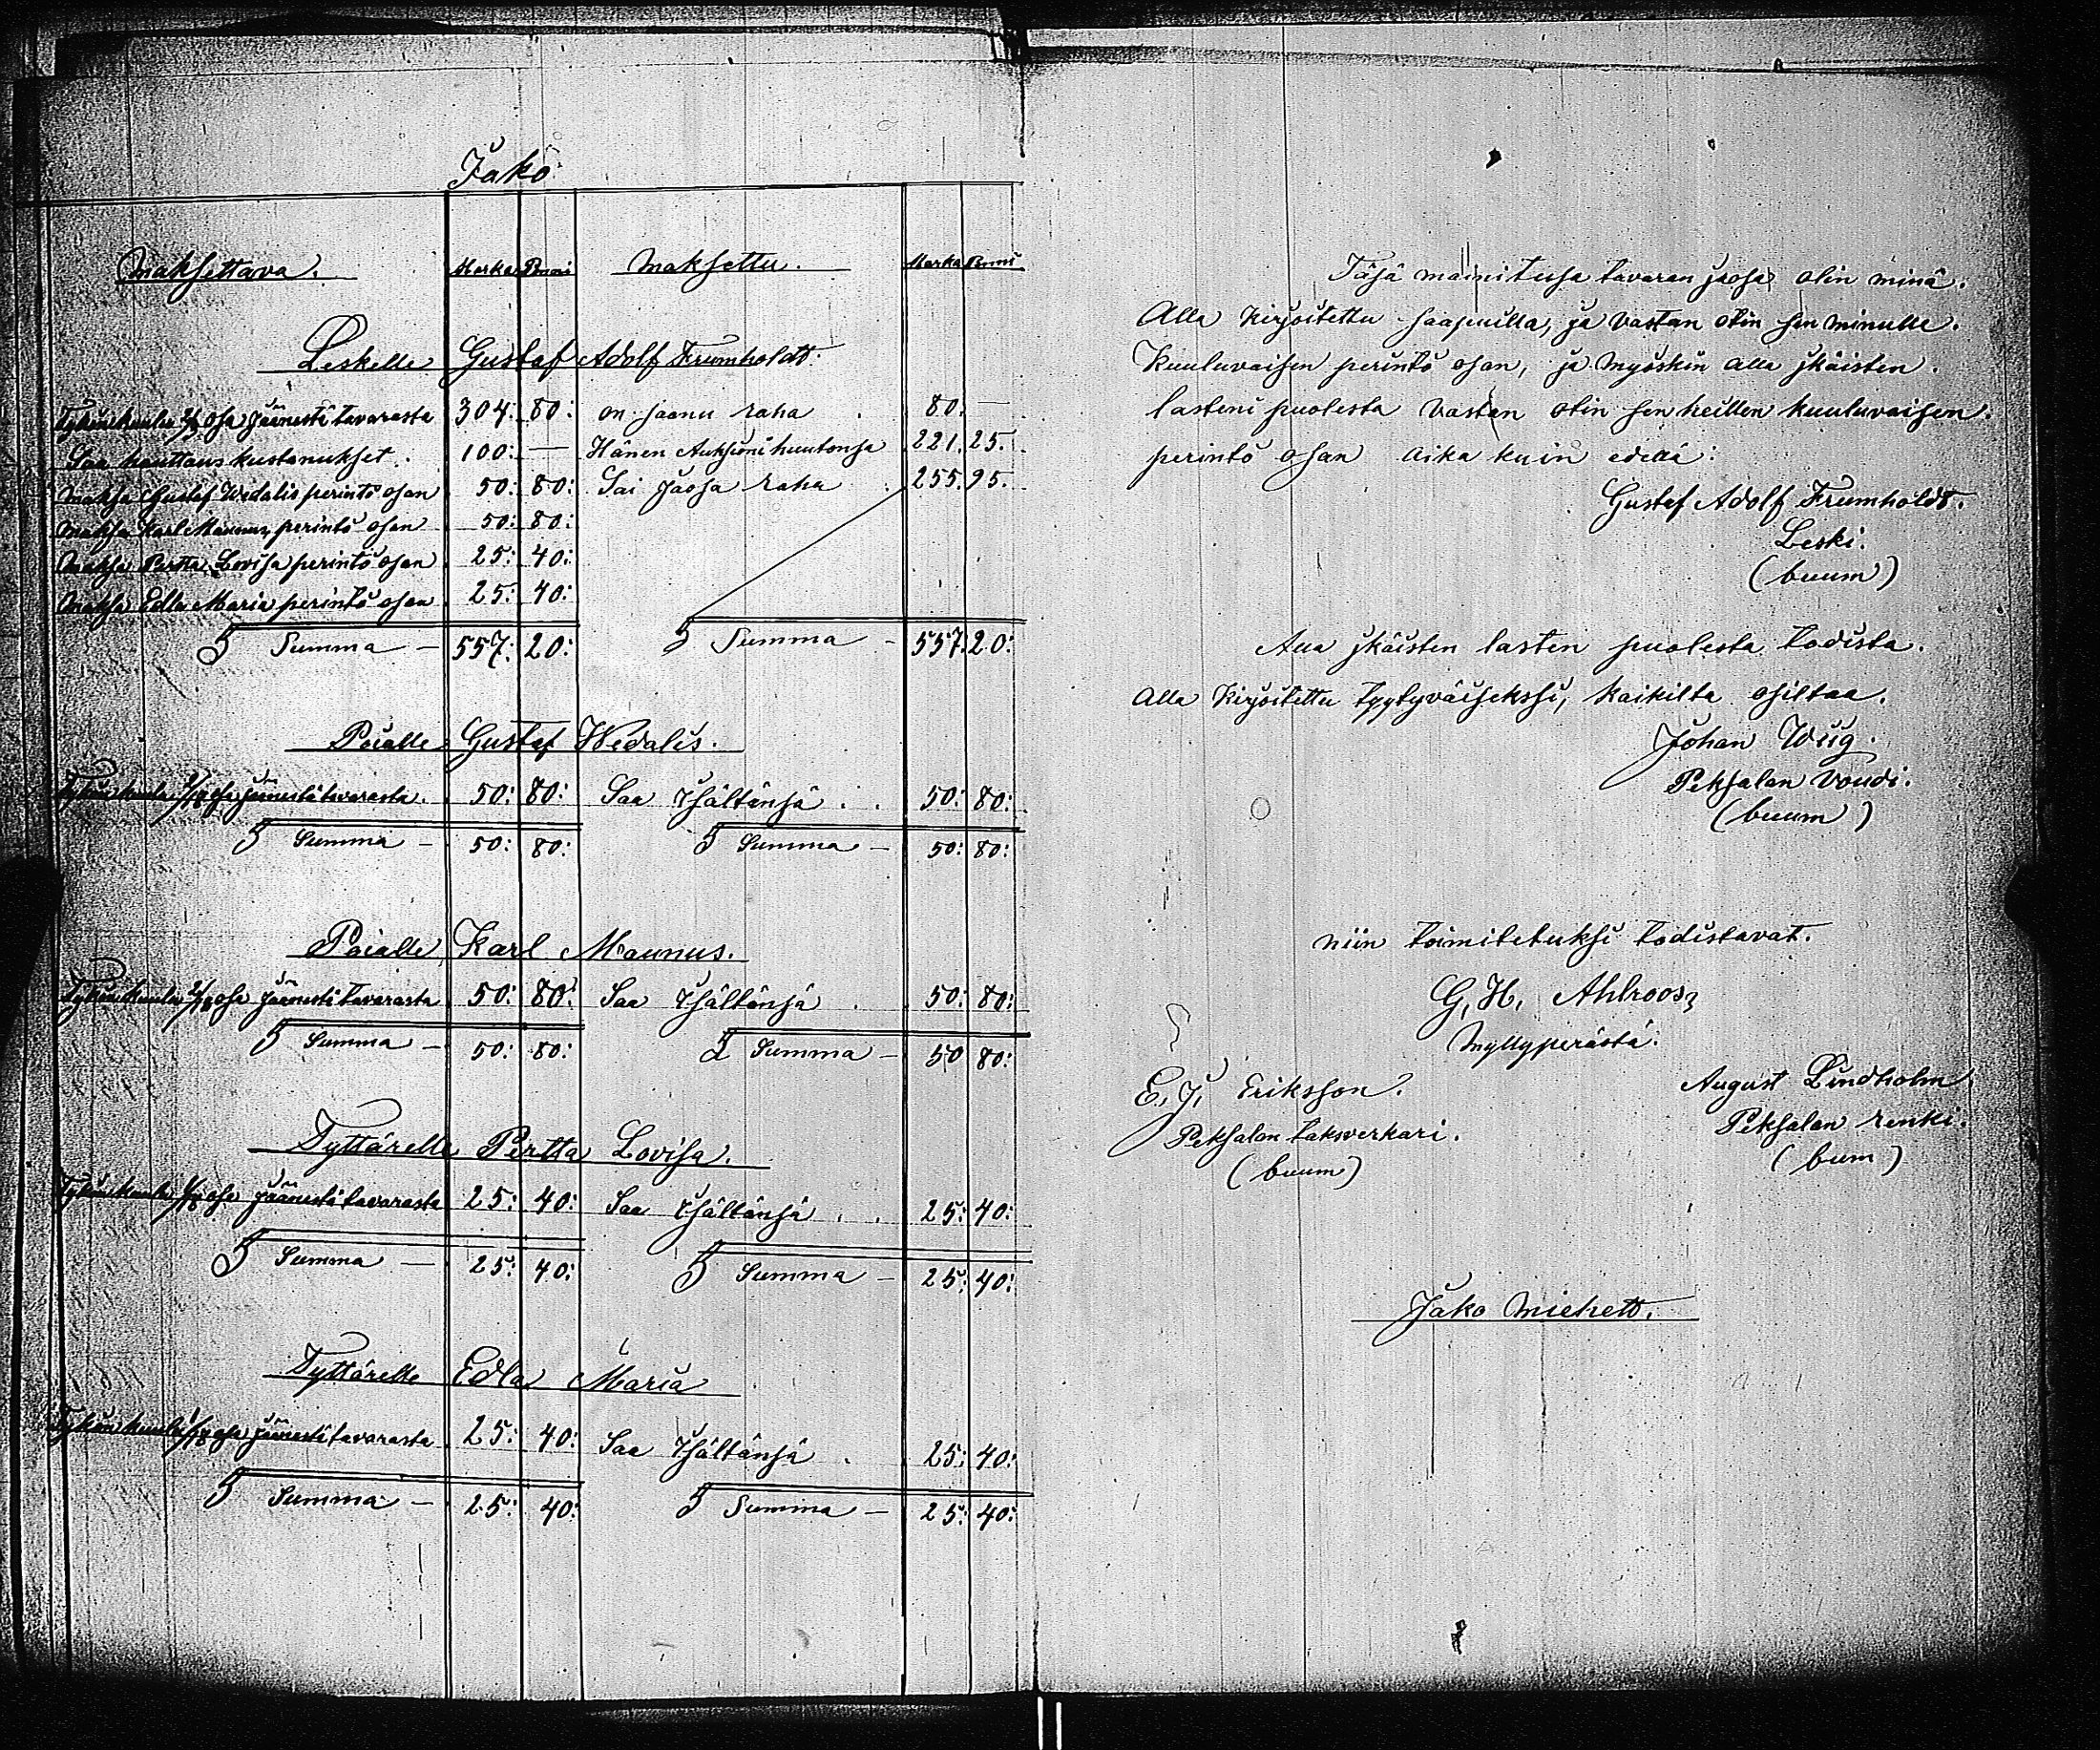 Jako
Maksettava. Marka Penni Maksettu. Marka Penni
Leskelle Gustaf Adolf Frumholdt.
Tykän kuulu 2/3 osa jäänestä tavarasta 304: 80: on saanu raha . 80. —
Saa hauttaus kustanukset . 100: — Hänen Auksioni huutonsa 221. 25.
Maksa Gustaf Wedalis perintö osan 50: 80: Sai jaosa raha . 255. 95.
Maksa Karl Maunus perintö osan 50: 80:
Maksa Pertta Lovisa perintö osan 25: 40:
Maksa Edla Maria perintö osan 25: 40:
Summa — 557: 20: Summa — 557. 20:
Poialle Gustaf Wedalis.
jäänestä tavarasta. 50: 80: Saa Isältänsä . . 50: 80:
Summa — 50: 80: Summa — 50: 80:
Poialle Karl Maunus.
osa jäänestä tavarasta 50: 80: Saa Isältänsä . 50: 80:
Summa — 50: 80: Summa — 50 80:
Tyttärelle Pertta Lovisa.
1/18 osa jäänestä tavarasta 25: 40: Saa Isältänsä . . 25: 40:
Summa — 25: 40: Summa — 25: 40:
Tyttärelle Edla Maria
1/18 osa jäänestä tavarasta 25: 40: Saa Isältänsä . 25: 40:
Summa — 25: 40: Summa — 25: 40:
Täsä mainitusa tavaran jaosa olin minä.
Alla Kirjoitettu saapuilla, ja vastan otin sen minulle.
Kuuluvaisen perintö osan, ja myöskin alla jkäisten.
lasteni puolesta vastan otin sen heillen kuuluvaisen.
perintö osan aika kuin edellä:
Gustaf Adolf Frumholdt.
Leski.
(buum)
Alla jkäisten lasten puolesta todista.
Alla Kirjoitettu tyytyväiseksi, kaikilta osiltaa.
Johan Wiig.
Peksalan Voudi.
(buum)
niin toimitetuksi todistavat.
G, H, Ahlroos,
Myllyperästä.
E, J, Eriksson. August Lindholm
Peksalan taksverkari. Peksalan renki.
(buum) (bum)
Jako Miehett.